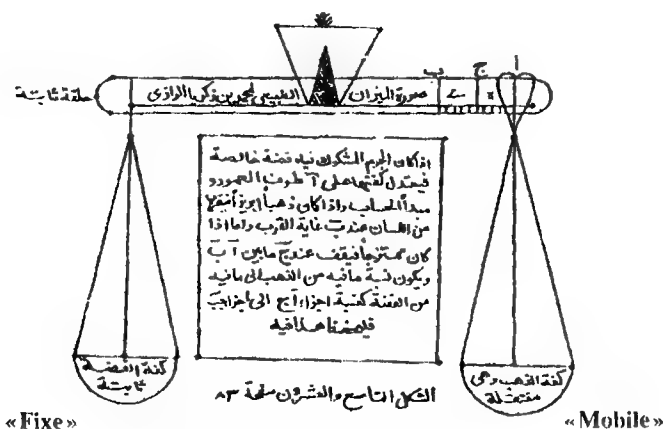 ا
ج
ب
حلقة ثابتة
صورة الميزان الطبيعي لمحمد بن زكريا الرازى
اذا كان الجرم المشكوك فيه فضة خالصة
فيعتدل كفتها على آ طرف العمود و
مبدأ الحساب واذا كان ذهباً ابريزاً
من اللسان عند ب غاية القرب واما اذا
كان ممتزجاً فيقف عند ج ما بين آ ب
ويكون نسبة ما فيه من الذهب الى ما فيه
من الفضة كنسبة اجزاء آج الى اجزا جب
هذا فيه
كفة الفضة
ثابتة
كفة الذهب وهى
منتقلة
الشكل التاسع والعشرون صفحة ٨٣
«Fixe»
«Mobile»